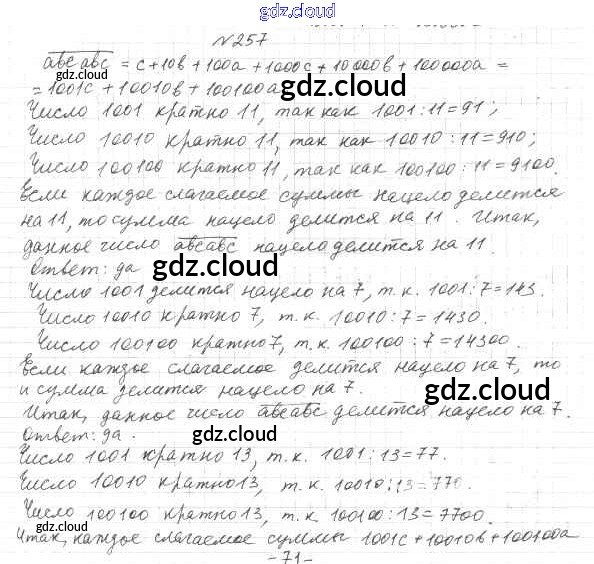 gdz.cloud
№257
abcabc = c+10b+100a+1000c+10000b+100000a =
= 1001c + 10010b + 100100a gdz.cloud
gdz.cloud
Число 1001 кратно 11, так как 1001:11=91;
Число 10010 кратно 11, так как 10010:11=910;
Число 100100 кратно 11, так как 100100:11=9100.
Если каждое слагаемое суммы нацело делится
на 11, то сумма нацело делится на 11. Итак,
данное число abcabc нацело делится на 11.
Ответ: да gdz.cloud
gdz.cloud
Число 1001 делится нацело на 7, т.к. 1001:7=143.
Число 10010 кратно 7, т.к. 10010:7=1430.
Число 100100 кратно 7, т.к. 100100:7=14300.
Если каждое слагаемое делится нацело на 7, то
и сумма делится нацело на 7. gdz.cloud
Итак, данное число abcabc делится нацело на 7.
Ответ: да. gdz.cloud
Число 1001 кратно 13, т.к. 1001:13=77.
Число 10010 кратно 13, т.к. 10010:13=770.
Число 100100 кратно 13, т.к. 100100:13=7700.
gdz.cloud
Итак, каждое слагаемое суммы 1001c+10010b+100100a
-71-